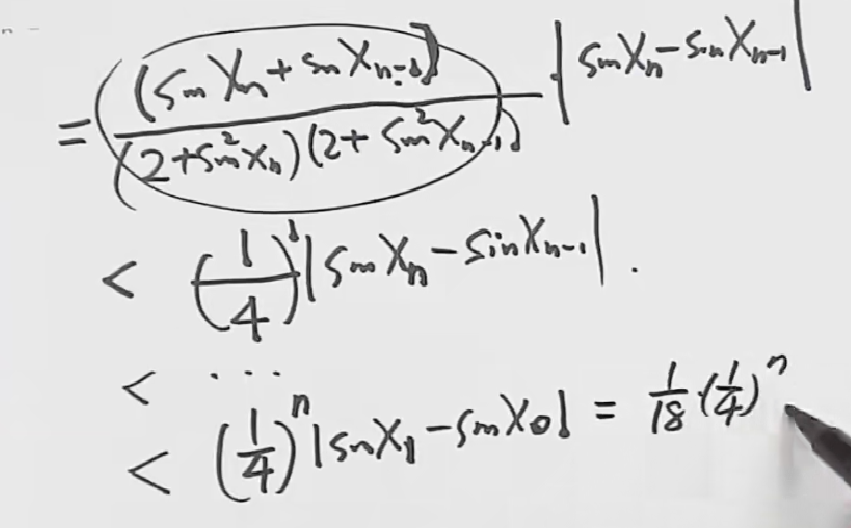 = (sin Xₙ + sin Xₙ₋₁) / (2+sin²Xₙ)(2+ sin²Xₙ₋₁) · |sin Xₙ − sin Xₙ₋₁|
< (1/4)¹ |sin Xₙ − sin Xₙ₋₁| .
< ...
< (1/4)ⁿ |sin X₁ − sin X₀| = 1/18 · (1/4)ⁿ